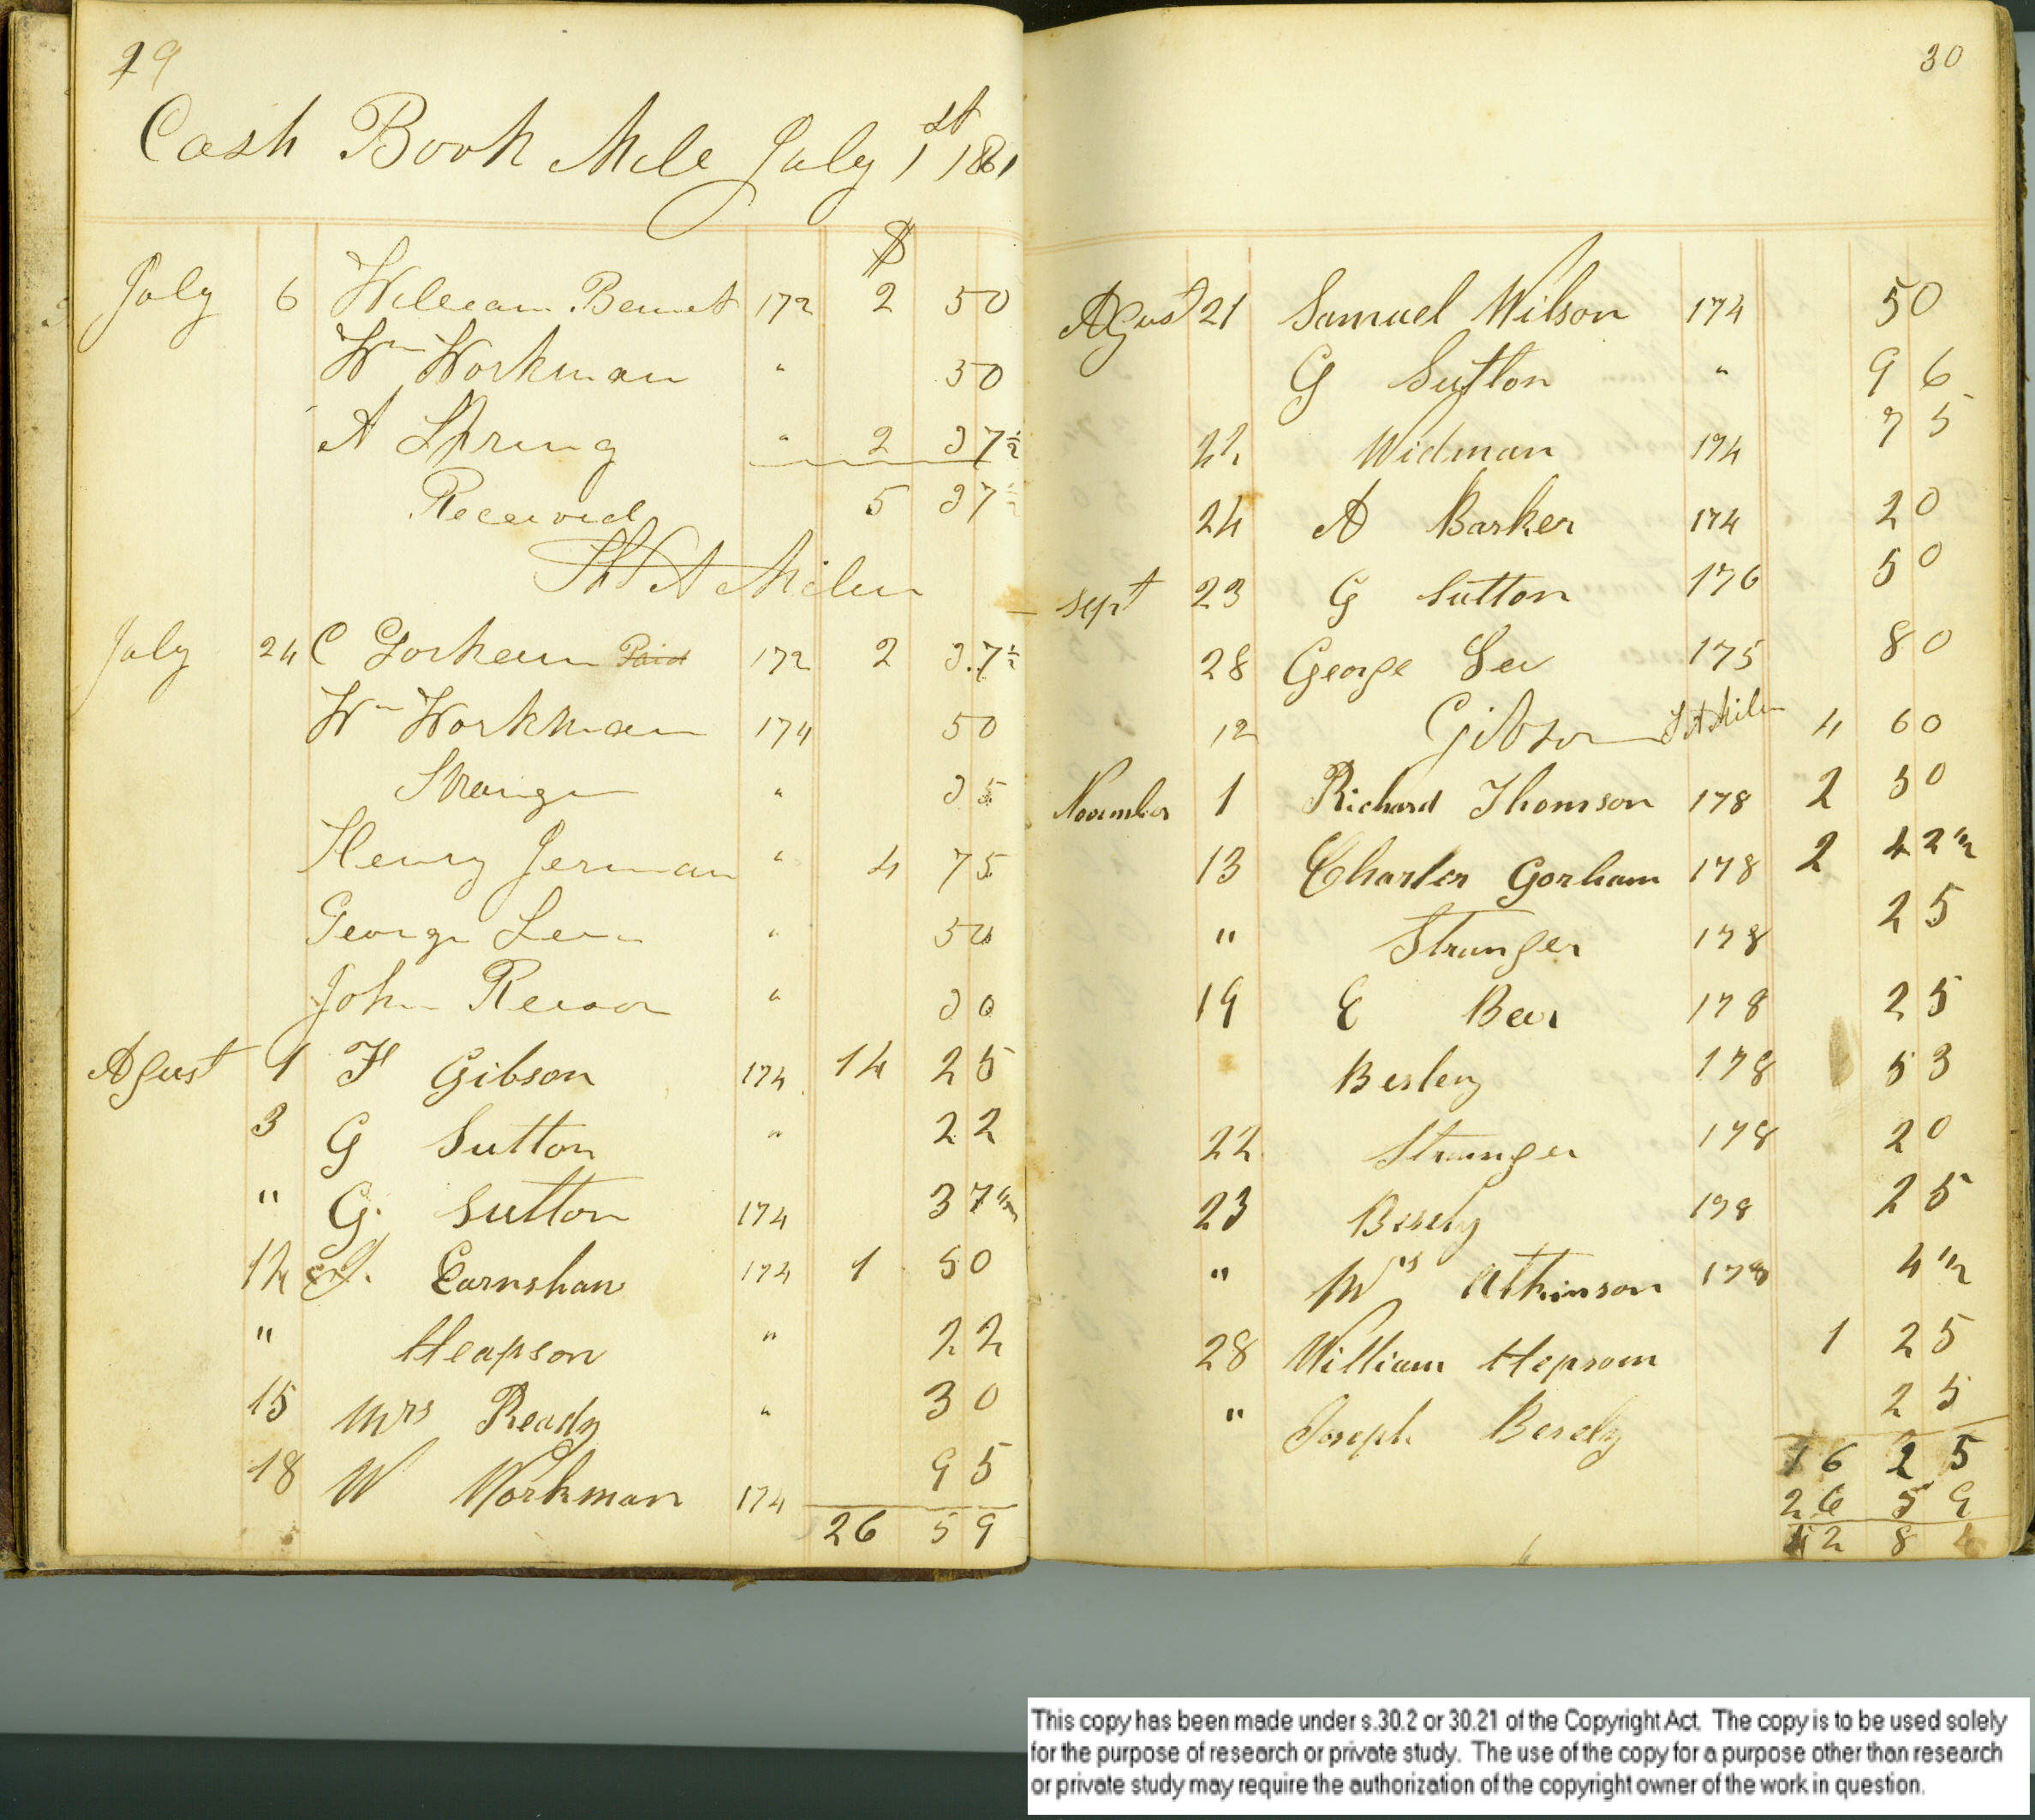 29
Cash Book Mill July 1st 1861
$
July 6 William Bennet 172 2 50
Wm Workman " 50
A Spring " 2 37½
Received 5 37½
A Milne
July 24 C Gorham Paid 172 2 37½
Wm Workman 174 50
Stranger " 35
Henry Jerman " 4 75
George Lee " 50
John Reesor " 30
Agust 1 F Gibson 174 14 25
3 G Sutton " 22
" G. Sutton 174 37½
14 Earnshaw 174 1 50
" Heapson " 22
15 Mrs Ready " 30
18 W Workman 174 95
26 59
30
Agust 21 Samuel Wilson 174 50
G Sutton " 96
22 Widman 174 75
24 A Barker 174 20
Sept 23 G Sutton 176 50
28 George Lee 175 80
12 Gibson A Milne 4 60
November 1 Richard Thomson 178 2 50
13 Charles Gorham 178 2 42½
" Stranger 178 25
19 E Bear 178 25
Besley 178 53
22 Stranger 178 20
23 Besely 178 25
" Mrs Atkinson 178 4½
28 William Hepsom 1 25
" Joseph Besely 25
16 25
26 59
42 8
This copy has been made under s.30.2 or 30.21 of the Copyright Act. The copy is to be used solely
for the purpose of research or private study. The use of the copy for a purpose other than research
or private study may require the authorization of the copyright owner of the work in question.